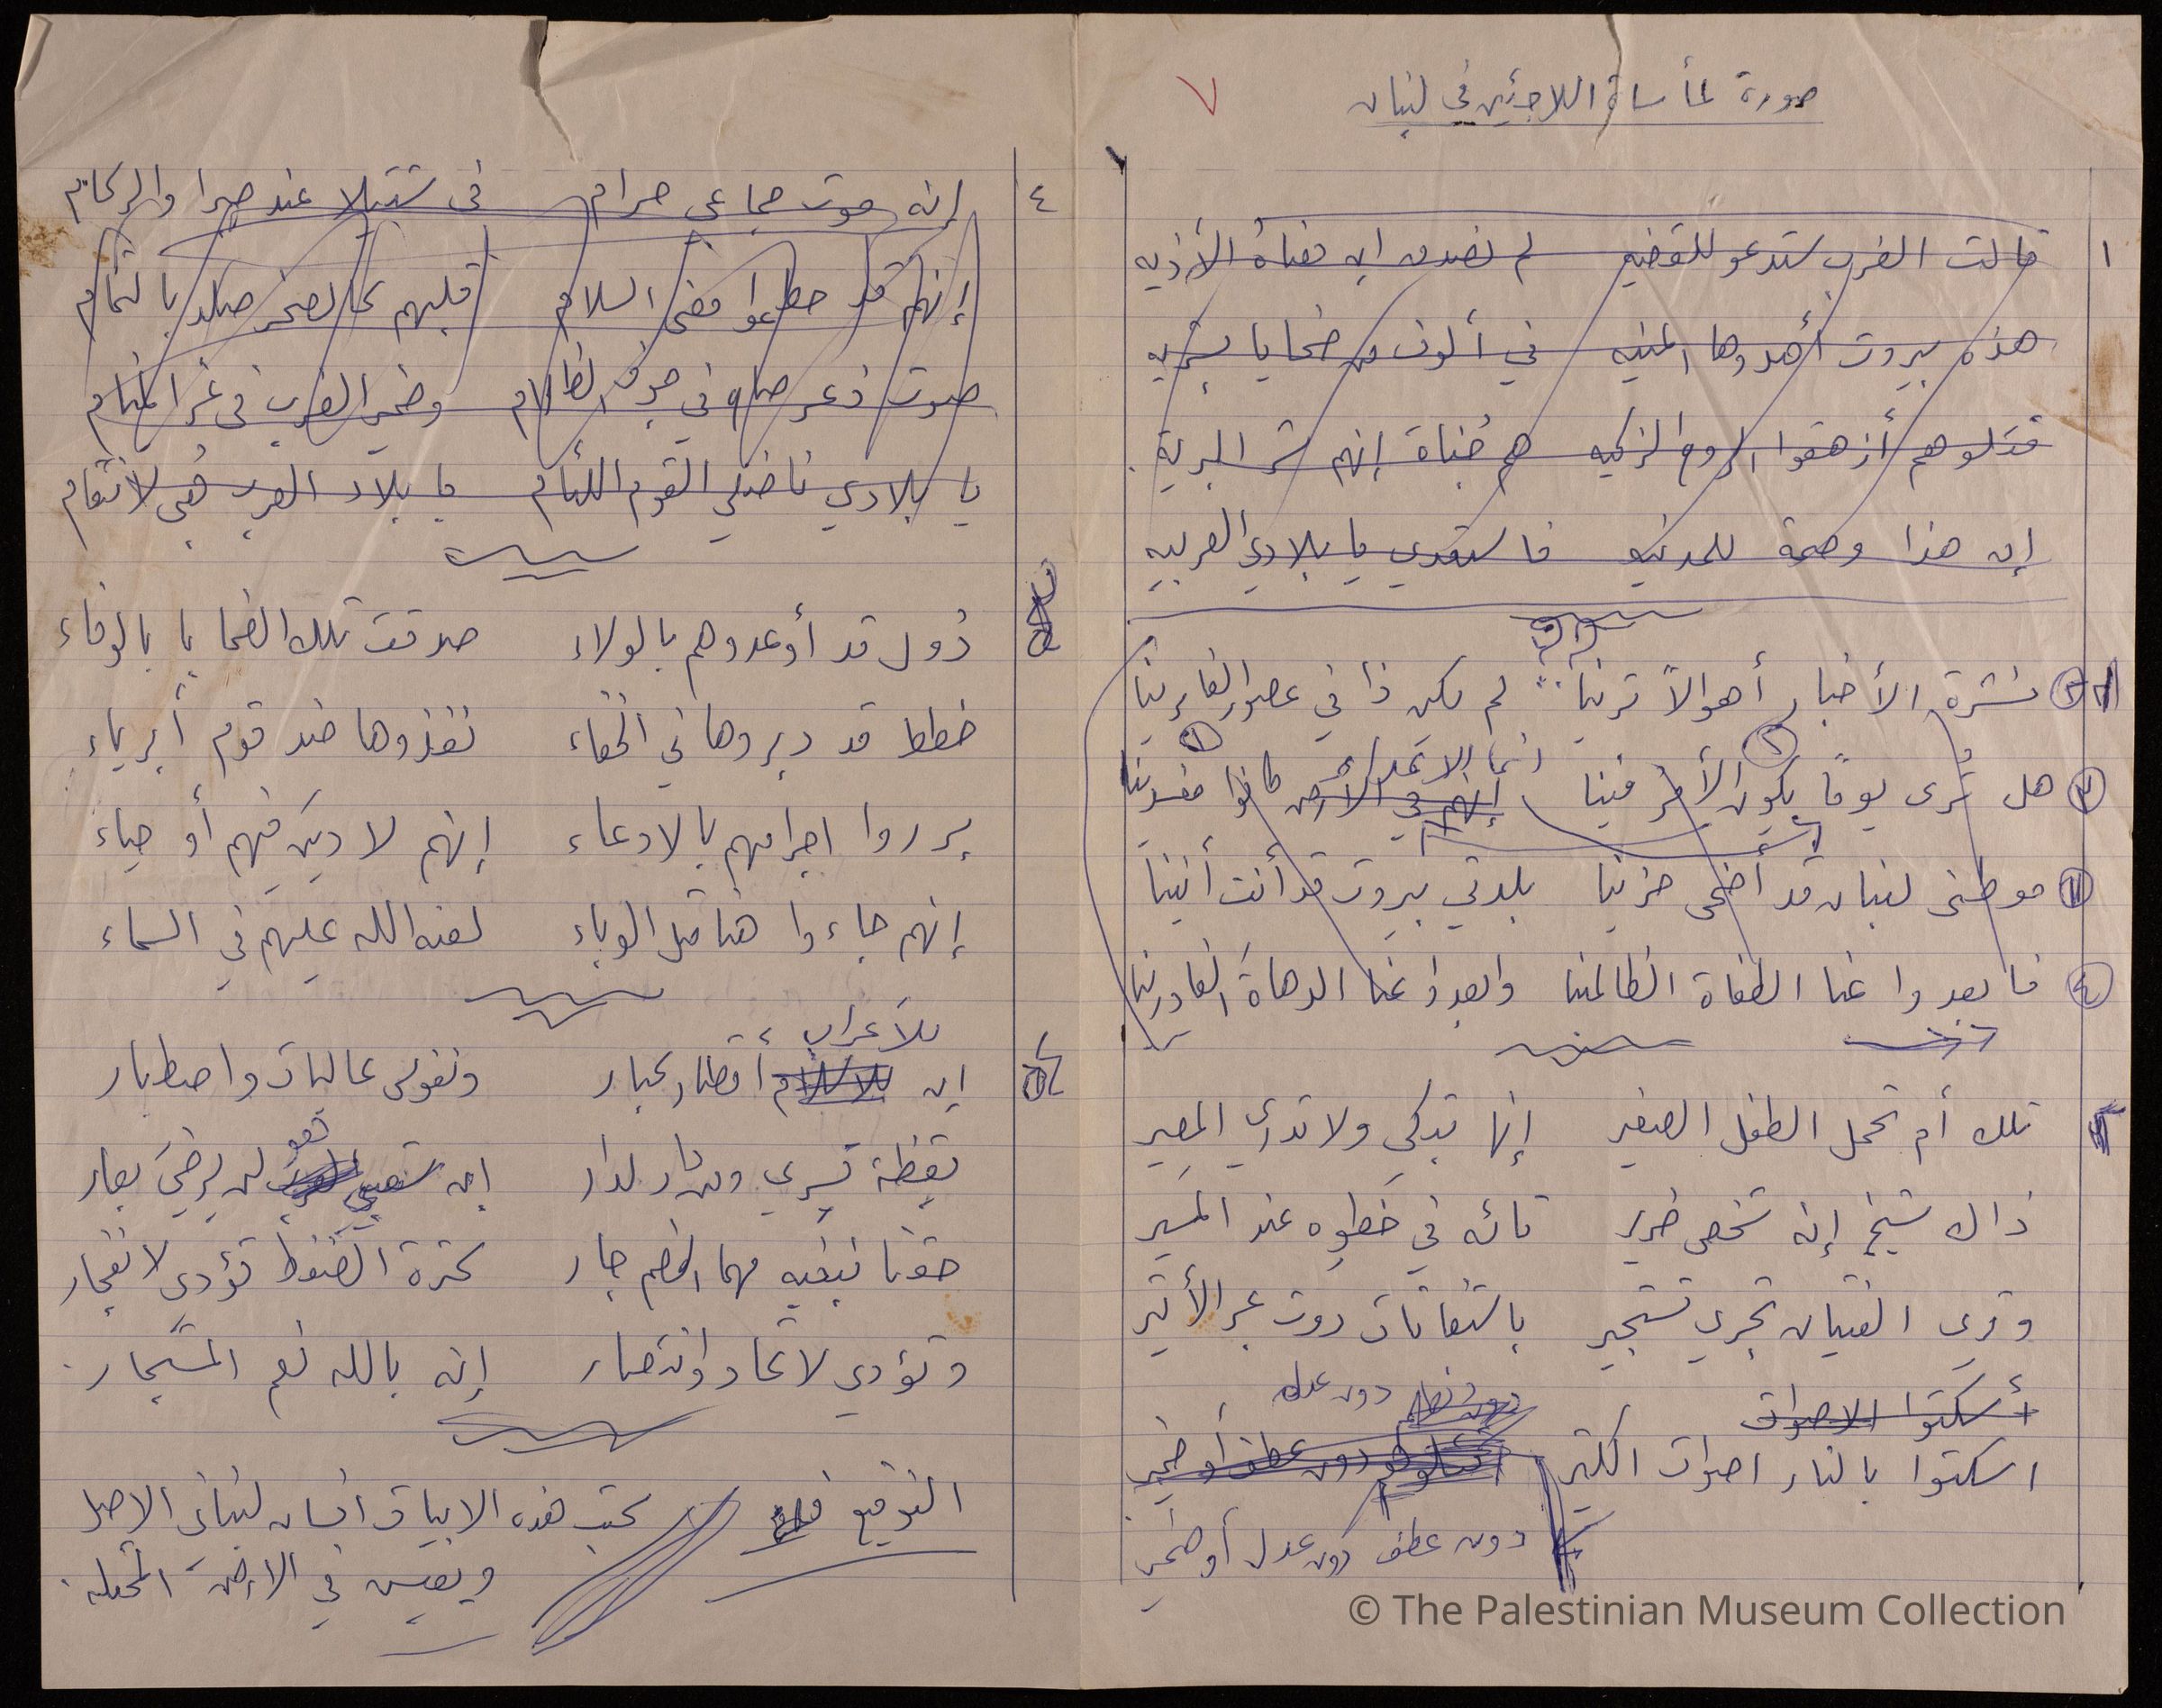 صورة لمأساة اللاجئين في لبنان
٧
١ قالت الغرب ستدعو للقضيه لم نصدق ان الأذيه
هذه بيروت أهدوها المنيه في ألوف من ضحايا بشريه
قتلوهم أزهقوا الروح الزكيه هم جُناة إنهم شر البرية.
إن هذا وصمة للمدنيه فاستعدي يا بلادي العربيه
نشرة الأخبار أهوالاً ترينا لم يكن ذا في عصور الغابرينا
٣ هل تُرى يوماً يكون الأمر فينا إنهم في الأرض كانوا مفسدينا
انما الاعداء
موطني لبنان قد أضحى حزينا بلدتي بيروت قد أنت أنينا
٤ فابعدوا عنا الطغاة الظالمينا وابعدوا عنا الدهاة الغادرينا
تلك أم تحمل الطفل الصغير إنها تبكي ولا تدري المصير
ذاك شيخ إنه شخص ضرير تائه في خطوه عند المسير
وترى الفتيان تجري تستجير باستغاثات دوت عبر الأثير
أسكتوا الاصوات
دون عدل
اسكتوا بالنار اصوات الكثير دون عطف أو ضمير
دون عطف دون عدل أو ضمير
٤ إنه موت جماعي حرام في شتيلا عند صبرا والركام
إنهم قد حطموا معنى السلام قلبهم كالصخر صلد بالتمام
صوت ذعر صاح في جوف الظلام وضمير الغرب في عز المنام
يا بلادي ناضلي القوم اللئام يا بلاد العرب هُبي لانتقام
دُول قد أوعدوهم بالولاء صدقت تلك الضحايا بالوفاء
خططا قد دبروها في الخفاء نفذوها ضد قوم أبرياء
برروا اجرامهم بالادعاء إنهم لا دين فيهم أو حياء
إنهم جاءوا هنا مثل الوباء لعنه الله عليهم في السماء
للأعراب
إن للاسلام أقطار كبار ونفوس عاليات واصطبار
يقظة تسري من دار لدار إن شعبي لن يرضى بعار
حقنا نبغيه مهما الخصم جار كثرة الضغوط تؤدي لانفجار
وتؤدي لاتحاد وانتصار إنه بالله نعم المستجار.
التوقيع كتب هذه الابيات انسان لبناني الاصل
ويعيش في الارض المحتله.
© The Palestinian Museum Collection